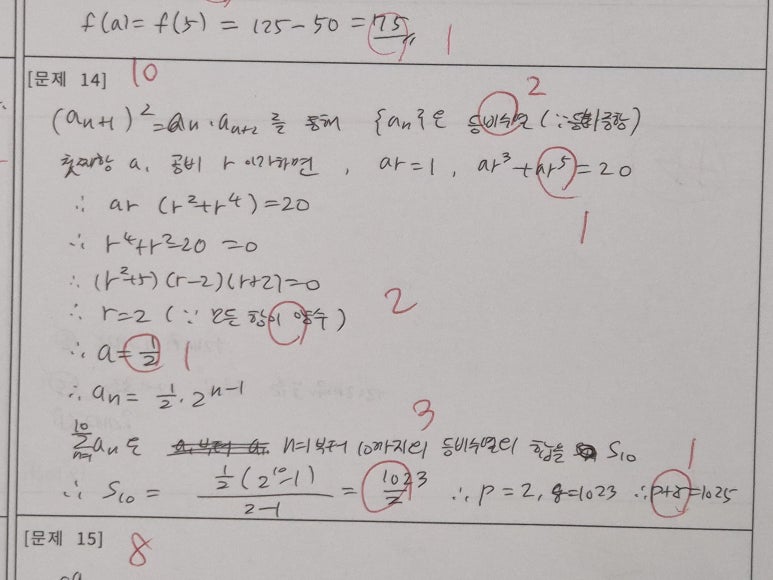 f(a) = f(5) = 125 - 50 = 75 1
[문제 14] 10
(an+1)² = an · an+2 를 통해 {an}은 등비수열 (∵ 등비중항) 2
첫째항 a, 공비 r 이라하면, ar = 1, ar³ + ar⁵ = 20 1
∴ ar (r² + r⁴) = 20
∴ r⁴ + r² - 20 = 0
∴ (r² + 5)(r - 2)(r + 2) = 0
∴ r = 2 (∵ 모든 항이 양수) 2
∴ a = 1/2 1
∴ an = 1/2 · 2ⁿ⁻¹
10 Σ n=1 an은 n=1부터 10까지의 등비수열의 합을 S10 3
∴ S10 = 1/2 (2¹⁰ - 1) / 2 - 1 = 1023/2 ∴ p = 2, q = 1023 ∴ p + q = 1025 1
[문제 15] 8